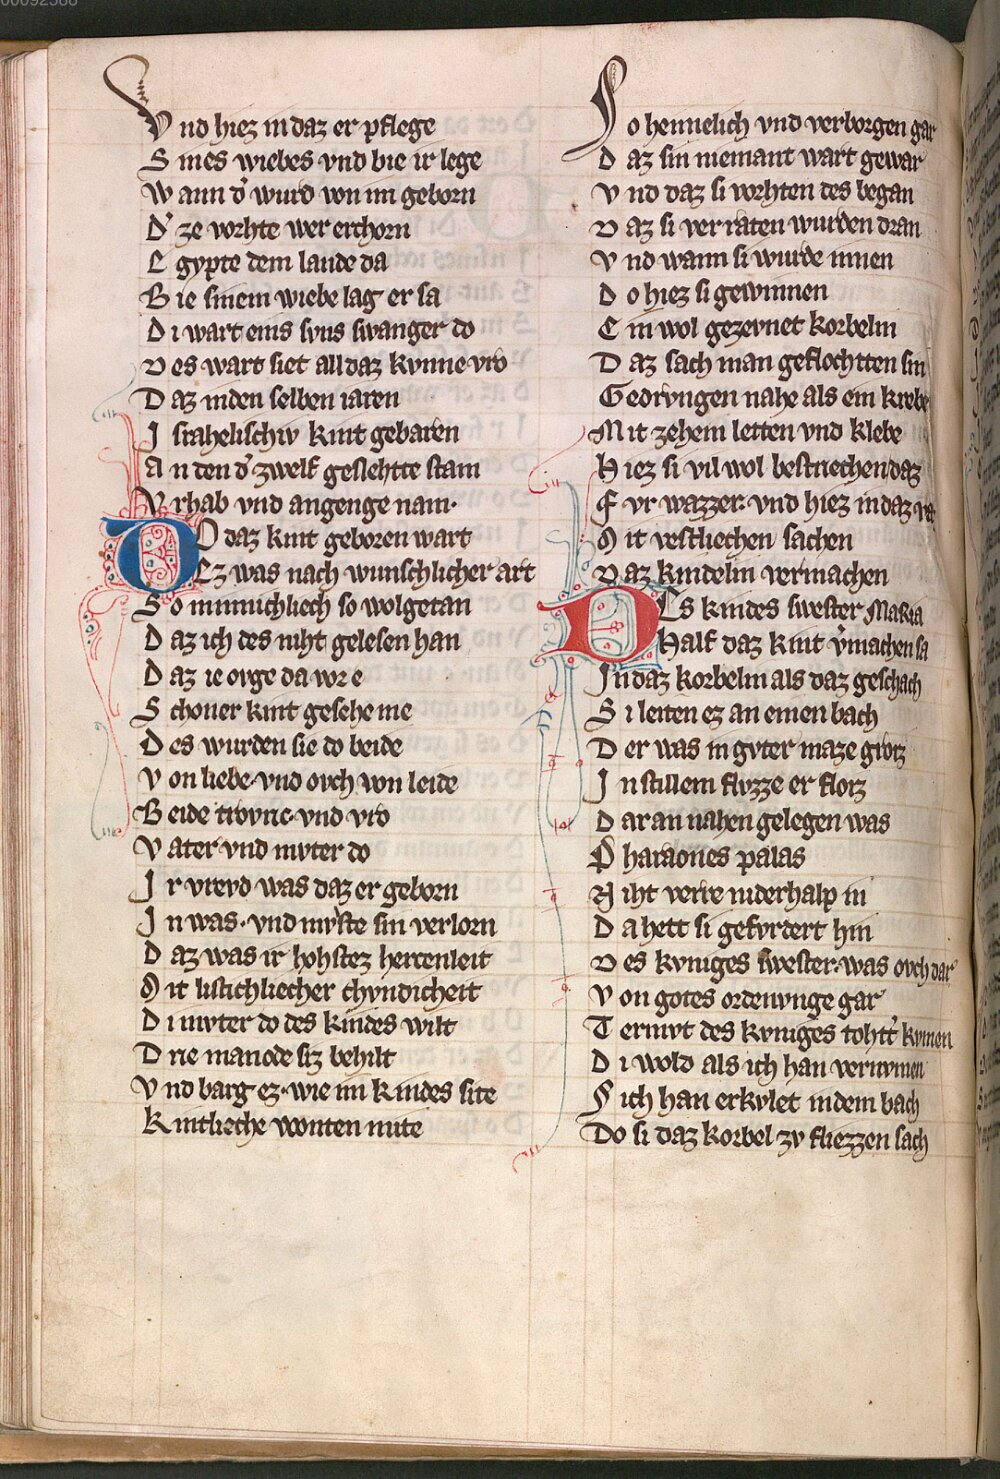 00092588
Vnd hiez in daz er pflege
Sines wiebes vnd bie ir lege
Wann d' wurd von im geborn
D' ze vorhte wer erchorn
Egypte dem lande da
Bie sinem wiebe lag er sa
Di wart eins svns swanger do
Des wart siet all daz kvnne vro
Daz in den selben iaren
Israhelischiv kint gebaren
An den d' zwelf geslehtte stam
Vrhab vnd angenge nam.
DO daz kint geboren wart
Ez was nach wunschlicher art
So minnichliech so wolgetan
Daz ich des niht gelesen han
Daz ie ovge da vor e
Schoner kint gesehe me
Des wurden sie do beide
Von liebe vnd ovch von leide
Beide trovric vnd vro
Vater vnd mvter do
Ir vrevd was daz er geborn
In was. vnd mvste sin verlorn
Daz was ir hohstez hercenleit
Mit listichliecher chvndicheit
Di mvter do des kindes wilt
Drie manode siz behilt
Vnd barg ez. wie im kindes site
Kintlieche wonten mite
So heimelich vnd verborgen gar
Daz sin niemant wart gewar
Vnd daz si vorhten des began
Daz si verraten wurden dran
Vnd wann si wurde innen
Do hiez si gewinnen
Ein wol gezevnet korbelin
Daz sach man geflochtten sin
Gedrvngen nahe als ein krebe
Mit zehem letten vnd klebe
Hiez si vil wol bestriechen daz
Fvr wazzer. vnd hiez in daz vaz
Mit vestliechen sachen
Daz kindelin vermachen
DEs kindes swester Maria
Half daz kint v'machen sa
In daz korbelin als daz geschach
Si leiten ez an einen bach
Der was in gvter maze groz
In stillem flvzze er floz
Dar an nahen gelegen was
Pharaones palas
Niht verre niderhalp in
Da hett si gefvrdert hin
Des kvniges swester. was ovch dar
Von gotes ordenvnge gar
Termvt des kvniges tohtt' kvmen
Di wold als ich han vernvmen
Sich han erkvlet in dem bach
Do si daz korbel zv fliezzen sach